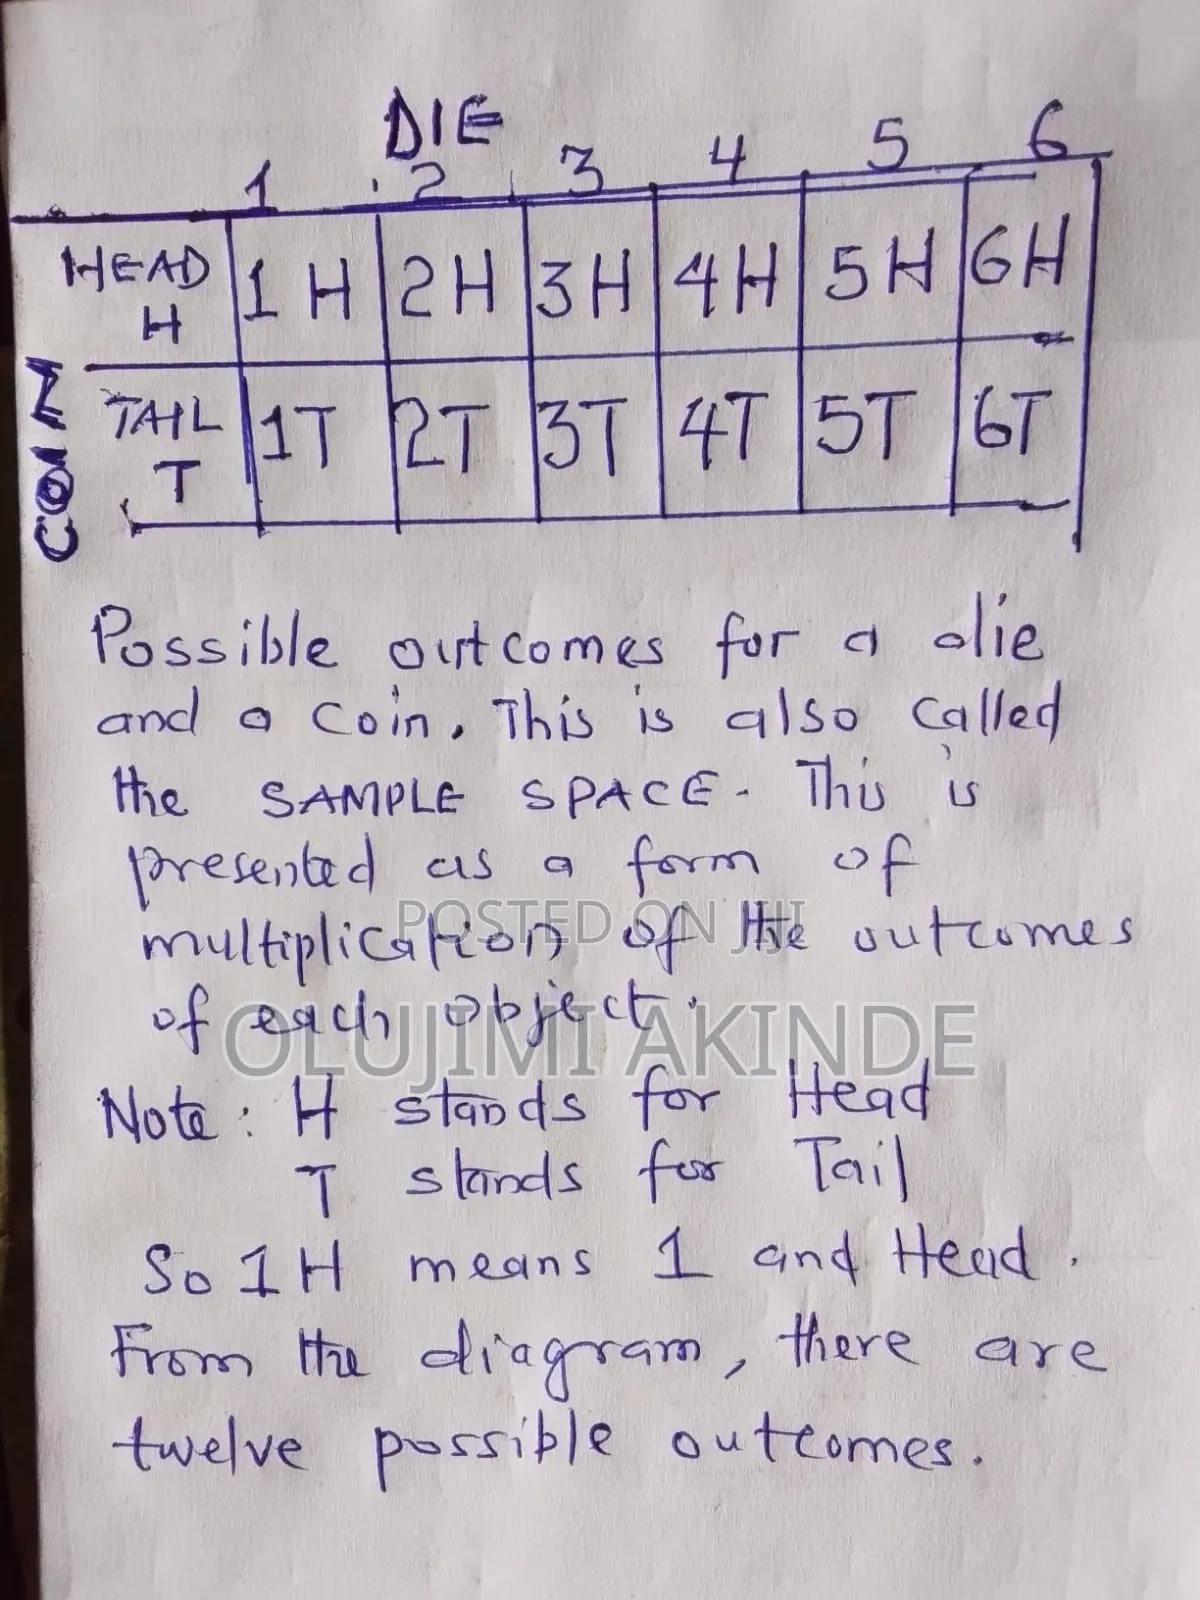 DIE
1 2 3 4 5 6
HEAD H 1H 2H 3H 4H 5H 6H
COIN
TAIL T 1T 2T 3T 4T 5T 6T
Possible outcomes for a die
and a coin. This is also called
the SAMPLE SPACE. This is
presented as a form of
multiplication of the outcomes
of each object.
POSTED ON JIJI
OLUJIMI AKINDE
Note: H stands for Head
T stands for Tail
So 1H means 1 and Head.
From the diagram, there are
twelve possible outcomes.